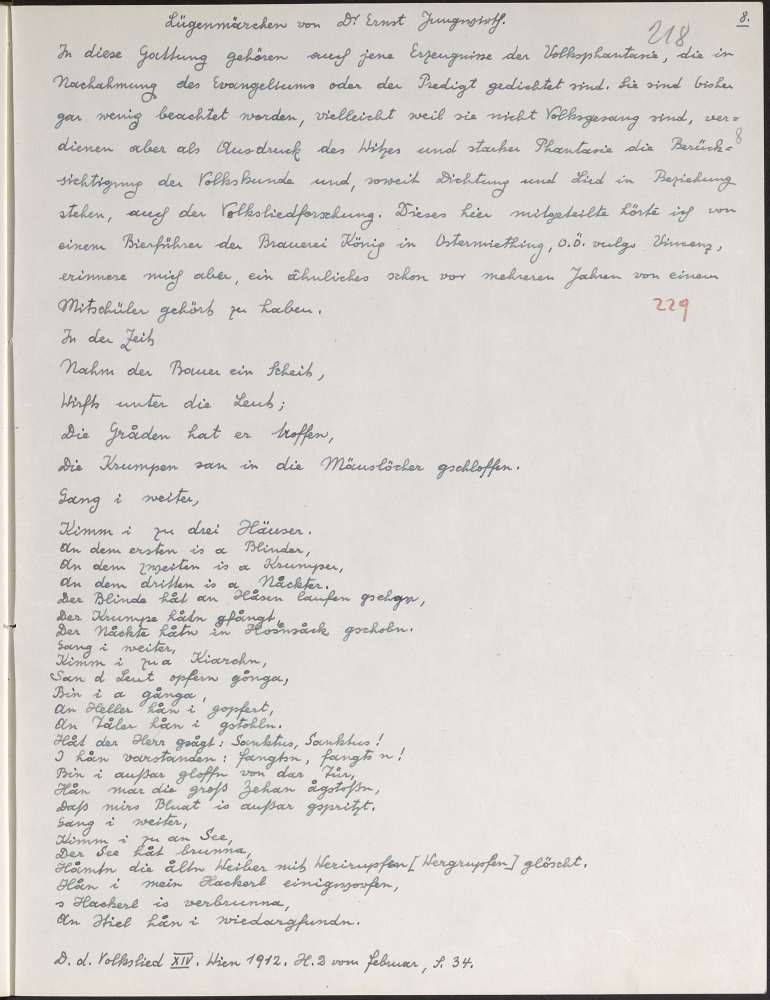 Lügenmärchen von Dr Ernst Jungwirth.
8.
218
In diese Gattung gehören auch jene Erzeugnisse der Volksphantasie, die in
Nachahmung des Evangeliums oder der Predigt gedichtet sind. Sie sind bisher
gar wenig beachtet worden, vielleicht weil sie nicht Volksgesang sind, ver=
8
dienen aber als Ausdruck des Witzes und starker Phantasie die Berück=
sichtigung der Volkskunde und, soweit Dichtung und Lied in Beziehung
stehen, auch der Volksliedforschung. Dieses hier mitgeteilte hörte ich von
einem Bierführer der Brauerei König in Ostermiething, O.Ö. vulgo Vinzenz,
erinnere mich aber, ein ähnliches schon vor mehreren Jahren von einem
Mitschüler gehört zu haben.
229
In der Zeit
Nahm der Bauer ein Scheit,
Wirfts unter die Leut;
Die Gråden hat er troffen,
Die Krumpen san in die Mäuslöcher gschloffen.
Gang i weiter,
Kimm i zu drei Häuser.
An dem ersten is a Blinder,
An dem zweiten is a Krumper,
An dem dritten is a Nåckter.
Der Blinde håt an Håsen laufen gsehgn,
Der Krumpe håtn gfångt,
Der Nåckte håtn in Hosnsåck gschobn.
Gang i weiter,
Kimm i zu a Kiarchn,
San d Leut opfern gånga,
Bin i a gånga,
An Heller hån i gopfert,
An Tåler hån i gstohln.
Håt der Herr gsågt: Sanktus, Sanktus!
I hån varstanden: fangtsn, fangts n!
Bin i außar gloffn von dar Tür,
Hån mar die groß Zehan ågstoßn,
Daß mirs Bluat is außar gspritzt.
Gang i weiter,
Kimm i zu an See,
Der See håt brunna,
Håmtn die åltn Weiber mit Werirupfen [Wergrupfen] glöscht.
Hån i mein Hackerl einigworfen,
s Hackerl is verbrunna,
An Stiel hån i wiedargfundn.
D. d. Volkslied XIV. Wien 1912. H. 2 vom Februar, S. 34.